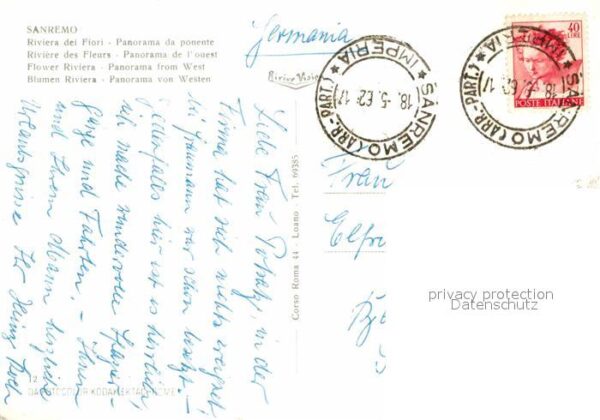 SANREMO
Riviera dei Fiori - Panorama da ponente
Rivière des Fleurs - Panorama de l'ouest
Flower Riviera - Panorama from West
Blumen Riviera - Panorama von Westen
Germania
SANREMO (ARR.-PART.)
IMPERIA
18.5.62.17
SANREMO (ARR.-PART.)
IMPERIA
40
LIRE
POSTE ITALIANE
Liebe Frau in der
Firma hat sich nichts ereignet
bei war schon besetzt -
jedenfalls hier ist es herrlich,
wir machen wundervolle Spazier-
gänge und Fahrten. - Ihnen
und Ihrem Mann herzliche
Urlaubsgrüsse Ihr Heinz
Corso Roma 44 - Loano - Tel. 69385
Frau
privacy protection
Datenschutz
12